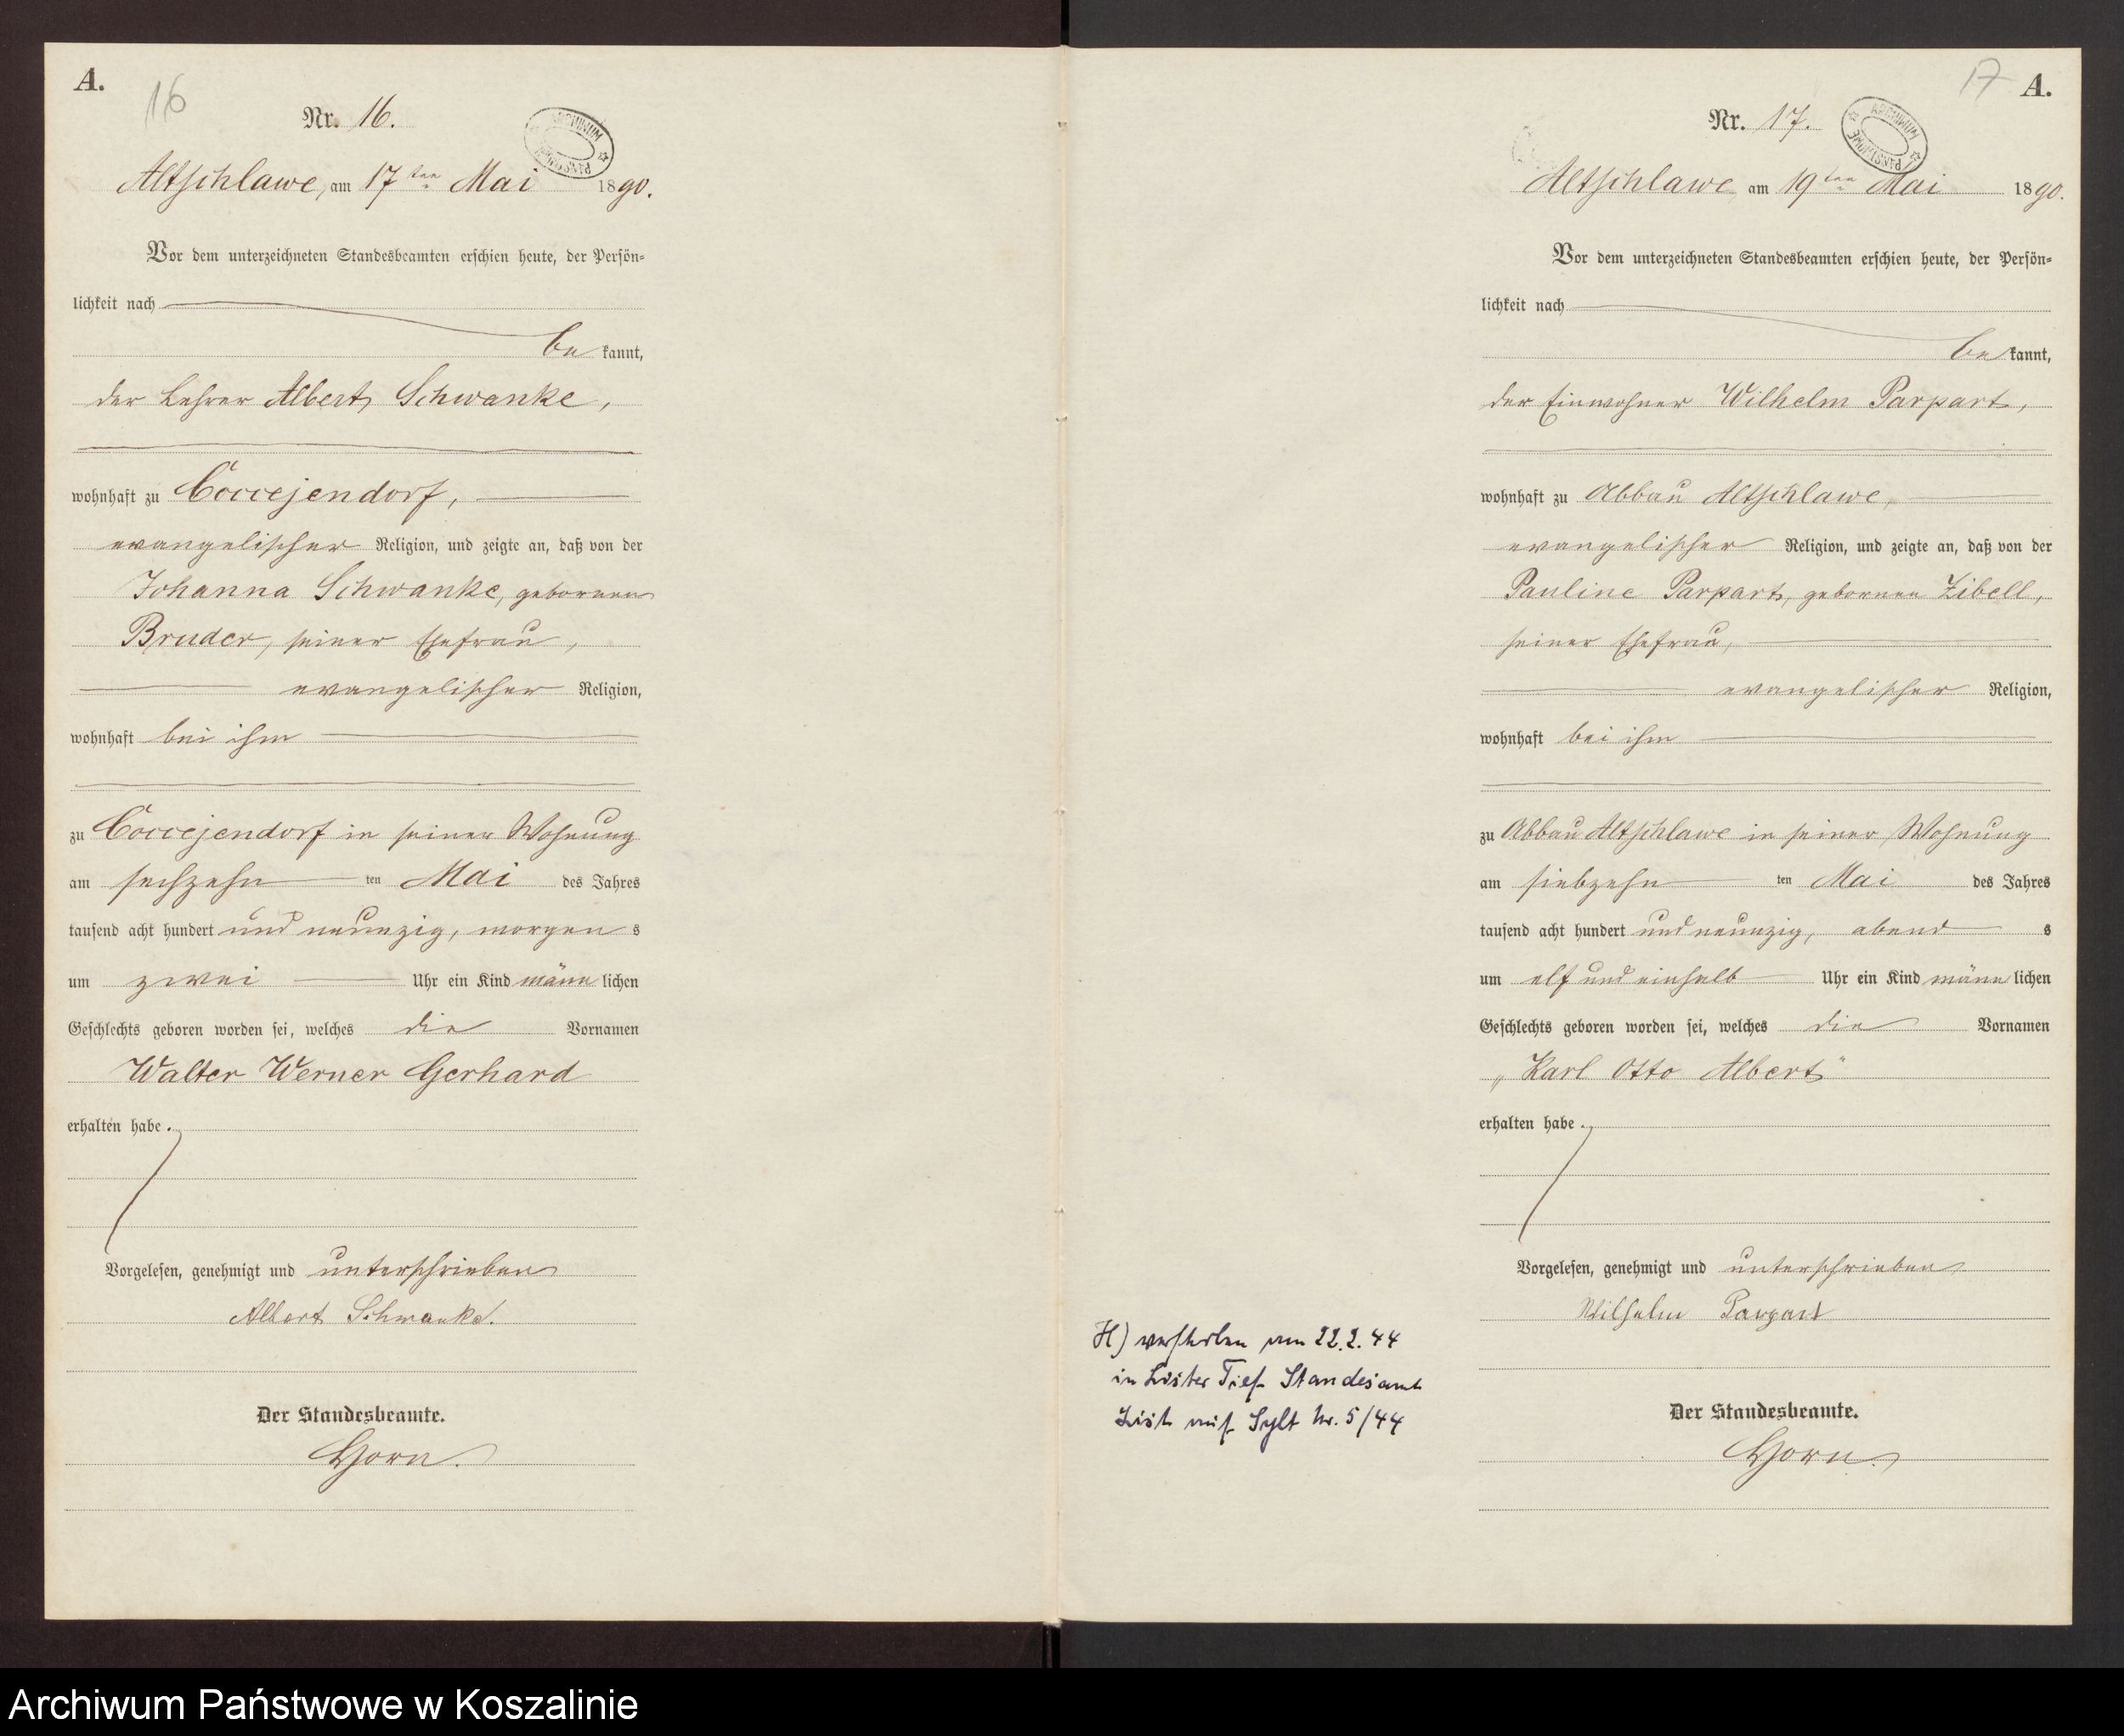 A.
16
Nr. 16.
ARCHIWUM PAŃSTWOWE
Altschlawe, am 17ten Mai 1890.
Vor dem unterzeichneten Standesbeamten erschien heute, der Persön-
lichkeit nach
be kannt,
der Lehrer Albert Schwanke,
wohnhaft zu Coccejendorf,
evangelischer Religion, und zeigte an, daß von der
Johanna Schwanke, geborenen
Bruder, seiner Ehefrau,
evangelischer Religion,
wohnhaft bei ihm
zu Coccejendorf in seiner Wohnung
am sechzehn ten Mai des Jahres
tausend acht hundert und neunzig, morgen s
um zwei Uhr ein Kind männ lichen
Geschlechts geboren worden sei, welches die Vornamen
Walter Werner Gerhard
erhalten habe.
Vorgelesen, genehmigt und unterschrieben
Albert Schwanke.
Der Standesbeamte.
Horn.
17
A.
Nr. 17.
ARCHIWUM PAŃSTWOWE
Altschlawe am 19ten Mai 1890.
Vor dem unterzeichneten Standesbeamten erschien heute, der Persön-
lichkeit nach
be kannt,
der Einwohner Wilhelm Parpart,
wohnhaft zu Abbau Altschlawe,
evangelischer Religion, und zeigte an, daß von der
Pauline Parpart, geborenen Zibell,
seiner Ehefrau,
evangelischer Religion,
wohnhaft bei ihm
zu Abbau Altschlawe in seiner Wohnung
am siebzehn ten Mai des Jahres
tausend acht hundert und neunzig, abend s
um elf und einhalb Uhr ein Kind männ lichen
Geschlechts geboren worden sei, welches die Vornamen
„Karl Otto Albert“
erhalten habe.
Vorgelesen, genehmigt und unterschrieben
Wilhelm Parpart
Der Standesbeamte.
Horn.
H) verstorben am 22.2.44
in Lister Tief Standesamt
List auf Sylt Nr. 5/44
Archiwum Państwowe w Koszalinie